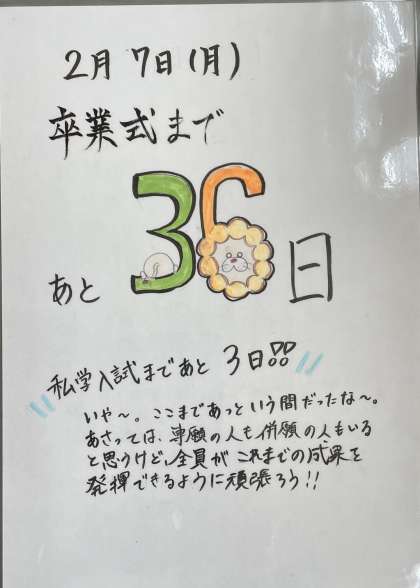 2月7日(月)
卒業式まで
あと 36日
私学入試まであと 3日!!
いや〜。ここまであっという間だったな〜。
あさっては、専願の人も併願の人もいる
と思うけど、全員がこれまでの成果を
発揮できるように頑張ろう!!